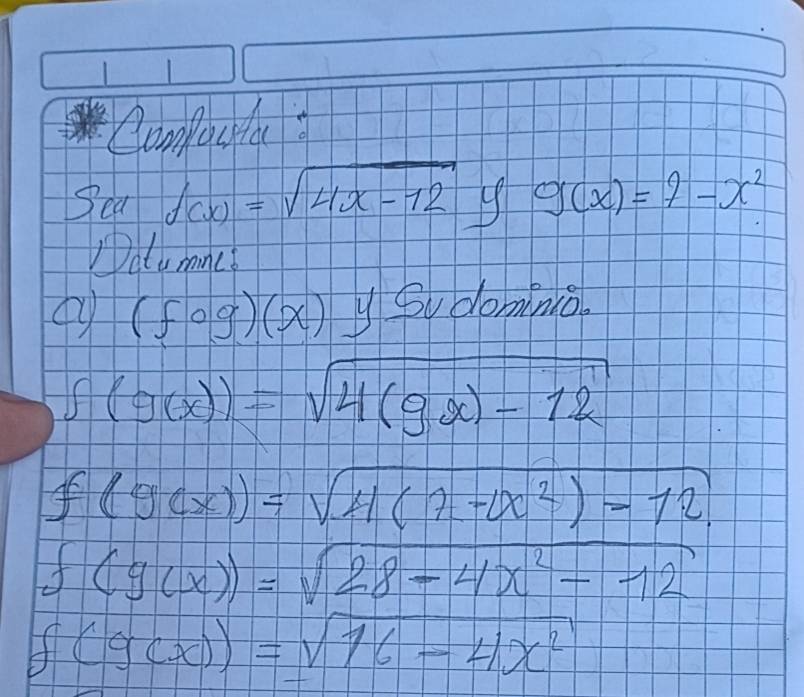 * Compuesta :
Sea f(x) = √4x - 12 y g(x) = 7 - x²
Determine:
a) (f o g)(x) y su dominio.
f(g(x)) = √4(gx) - 12
f(g(x)) = √4(7-x²) - 12
f(g(x)) = √28 - 4x² - 12
f(g(x)) = √16 - 4x²